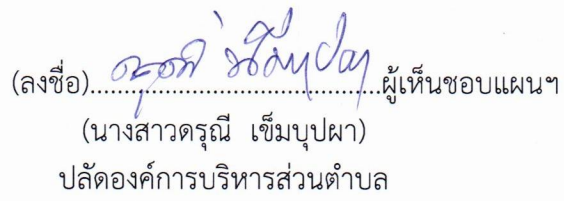 (ลงชื่อ)........................................ผู้เห็นชอบแผนฯ
(นางสาวดรุณี เข็มบุปผา)
ปลัดองค์การบริหารส่วนตำบล